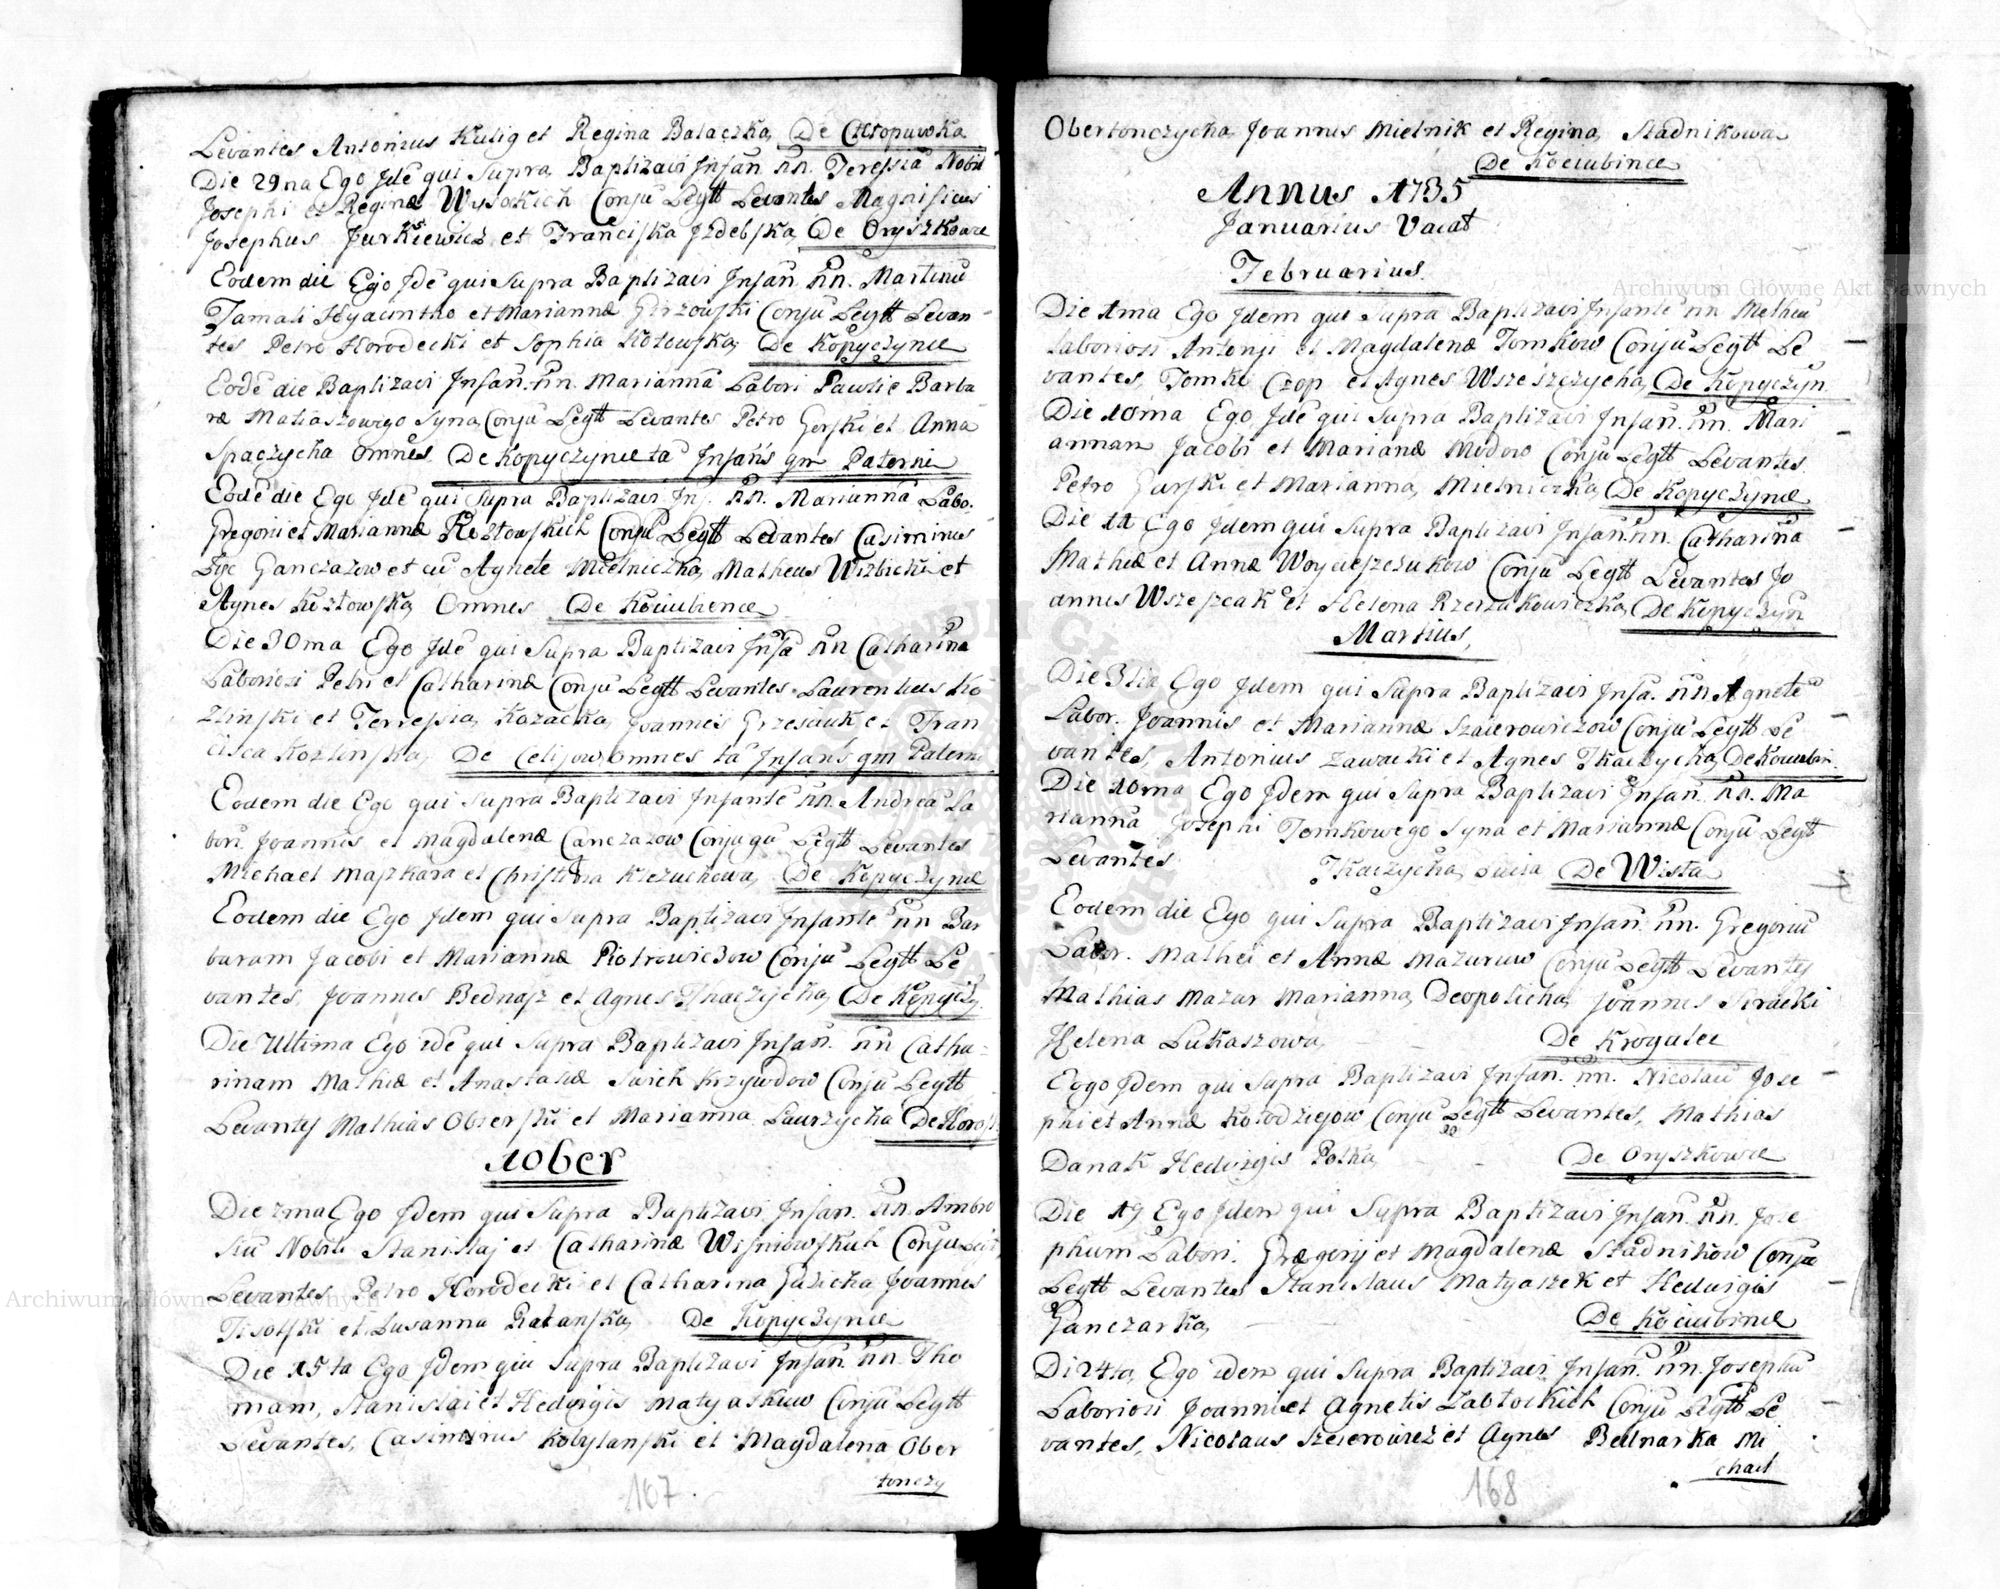 Levantes Antonius Kulig et Regina Balaczka De Chłopuwka
Die 29na Ego Jdē qui Supra Baptizavi Jnfan n̄n. Teressiā Nobil
Josephi et Reginæ Wysokich Conju Legtt Levantes Magnificus
Josephus Jurkiewicz et Franciska Jzdebska De Oryszkowce
Eodem die Ego Jdē qui Supra Baptizavi Jnfan n̄n. Martinū
Famati Hyacintho et Mariannæ Girzowski Conju Legtt Levan-
tes Petro Horodecki et Sophia Kotowska De Kopyczynce
Eodē die Baptizavi Jnfan. n̄n. Mariannā Labori Pawlie Barba
ræ Matiaszowigo Syna Conju Legtt Levantes Petro Gorski et Anna
Spaczycha Omnes. De Kopyczynce ta Jnfans qm Paterni
Eodē die Ego Jdē qui Supra Baptizavi Jnf. n̄n. Mariannā Labo.
Gregorii et Mariannæ Kozłowskich Conju Legtt Levantes Casimirus
Ganczazow et cū Agnete Mielniczka Matheus Wirzbicki et
Agnes Kozłowska Omnes De Kociubence
Die 30ma Ego Jdē qui Supra Baptizavi Jnfā n̄n Catharina
Laboriosi Petri et Catharinæ Conju Legtt Levantes Laurentius Ko
zlinski et Terressia Kozacka Joannes Grzesiuk et Fran
cisca Kozlinska De Celijow omnes ta Jnfans qm Paterni
Eodem die Ego qui Supra Baptizavi Jnfantē n̄n. Andreā La
bori. Joannis et Magdalenæ Canczazow Conjugū Legtt Levantes
Michael Maszkara et Christina Klezuchowa De Kopyczynce
Eodem die Ego Jdem qui Supra Baptizavi Jnfantē n̄n Bar
baram Jacobi et Mariannæ Piotrowiczow Conju Legtt Le
vantes, Joannes Bednasz et Agnes Tkaczycha De Kopyczy.
Die Ultima Ego idē qui Supra Baptizavi Jnfan. n̄n Catha-
rinam Mathiæ et Anastasiæ Krzywdow Conju Legtt
Levantes Mathias Oberski et Marianna Laurzycha De Horos
10ber
Die 2ma Ego Jdem qui Supra Baptizavi Jnfan. n̄n. Ambro
siū Nobili Stanislaj et Catharinæ Wisniowskich Conju Legt
Levantes Petro Horodecki et Catharina Gulicka Joannes
Tisolski et Susanna Ratanska De Kopyczynce
Die 15ta Ego Jdem qui Supra Baptizavi Jnfan. n̄n. Tho
mam, Stanislai et Hedvigis Matyaskuw Conju Legtt
Levantes, Casimirus Kobylanski et Magdalena Ober
tonczy
167
Obertonczycha, Joannes Mielnik et Regina Stadnikowa
De Kociubince
Annus 1735
Januarius Vacat
Februarius.
Die 1ma Ego Jdem qui Supra Baptizavi Jnfantē n̄n Matheū
Laboriosi Antonji et Magdalenæ Tomkow Conju Legtt Le
vantes, Tomko Czop et Agnes Wszeszczycha, De Kopyczyn.
Die 10ma Ego Jdē qui Supra Baptizavi Jnfan. n̄n. Mari
annam Jacobi et Marianæ Mrdow Conju Legtt Levantes.
Petro Gurski et Marianna Mielniczka, De Kopyczynce
Die 11 Ego Jdem qui Supra Baptizavi Jnfan. n̄n. Catharina
Mathiæ et Annæ Woyciejzesukow Conju Legtt Levantes Jo
annes Wszeszcak et Helena Rzerzakowiczka De Kopyczyn
Martius,
Die 3tia Ego Jdem qui Supra Baptizavi Jnfa. n̄n Agnetē
Labor. Joannis et Mariannæ Szaierowiczow Conju Legtt Le
vantes, Antonius Zawacki et Agnes Tkaczycha, De Kociubin.
Die 10ma Ego Jdem qui Supra Baptizavi Jnfan. n̄n. Ma
riannā Josephi Tomkowego Syna et Mariannæ Conju Legtt
Levantes Tkaczycha De Wista
Eodem die Ego qui Supra Baptizavi Jnfan. n̄n. Gregoriū
Labor. Mathei et Annæ Mazuruw Conju Legtt Levantes
Mathias Mazur Marianna Deopolicha Joannes Siracki
Helena Lukaszowa, De Krogulec
Eogo Jdem qui Supra Baptizavi Jnfan. n̄n. Nicolaū Jose
phi et Annæ Kolodziejow Conju Legtt Levantes, Mathias
Danak Hedvigis Polka, De Oryszkowce
Die 19 Ego Jdem qui Supra Baptizavi Jnfan. n̄n. Jose
phum Labori. Græegorij et Magdalenæ Stadnikow Conju
Legtt Levantes Stanislaus Matyaszek et Hedvigis
Ganczarka, De Kociubince
Di 24ta Ego idem qui Supra Baptizavi Jnfan. n̄n. Josephū
Laboriosi Joannis et Agnetis Zabłockich Conju Legtt Le
vantes, Nicolaus Szeierowicz et Agnes Bednarka Mi
chael
168
Archiwum Główne Akt Dawnych
Archiwum Główne Akt Dawnych